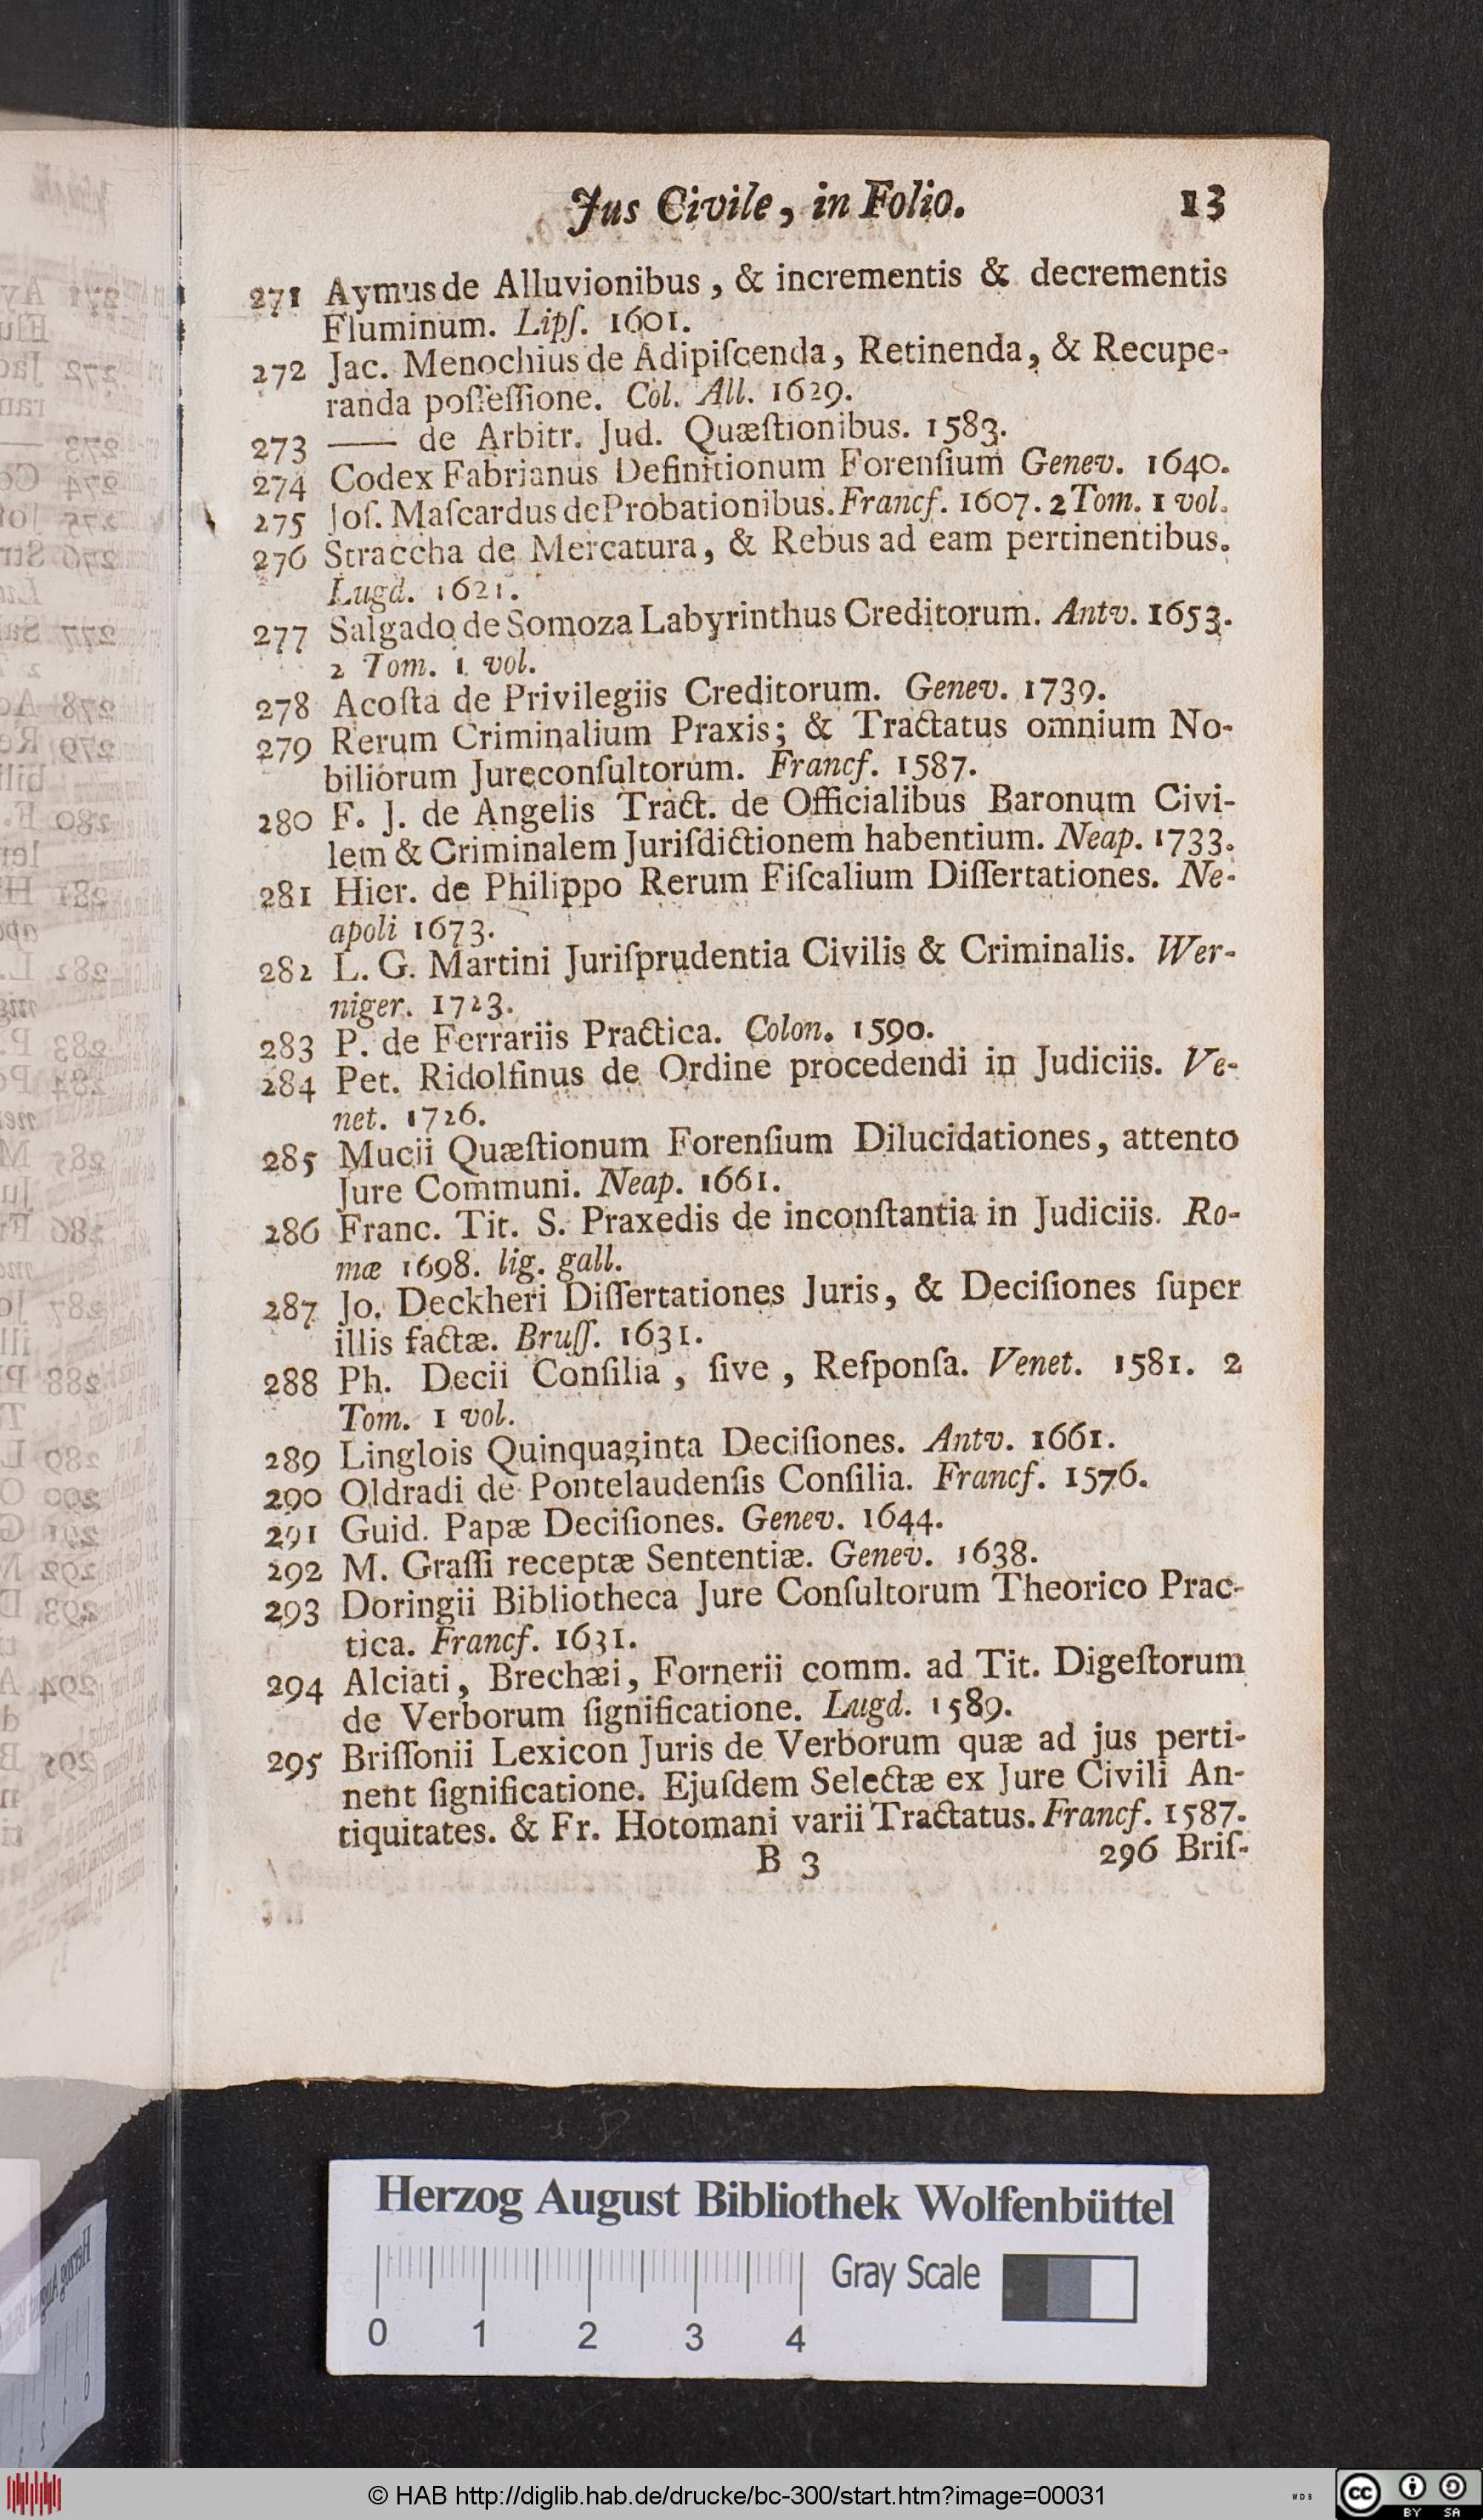 Jus Civile, in Folio. 13
271 Aymus de Alluvionibus, & incrementis & decrementis
Fluminum. Lipſ. 1601.
272 Jac. Menochius de Adipiſcenda, Retinenda, & Recupe-
randa poſſeſſione. Col. All. 1629.
273 —— de Arbitr. Jud. Quæſtionibus. 1583.
274 Codex Fabrianus Definitionum Forenſium Genev. 1640.
275 Joſ. Maſcardus de Probationibus. Francf. 1607. 2 Tom. 1 vol.
276 Straccha de Mercatura, & Rebus ad eam pertinentibus.
Lugd. 1621.
277 Salgado de Somoza Labyrinthus Creditorum. Antv. 1653.
2 Tom. 1 vol.
278 Acoſta de Privilegiis Creditorum. Genev. 1739.
279 Rerum Criminalium Praxis; & Tractatus omnium No-
biliorum Jureconſultorum. Francf. 1587.
280 F. J. de Angelis Tract. de Officialibus Baronum Civi-
lem & Criminalem Juriſdictionem habentium. Neap. 1733.
281 Hier. de Philippo Rerum Fiſcalium Diſſertationes. Ne-
apoli 1673.
282 L. G. Martini Juriſprudentia Civilis & Criminalis. Wer-
niger. 1723.
283 P. de Ferrariis Practica. Colon. 1590.
284 Pet. Ridolfinus de Ordine procedendi in Judiciis. Ve-
net. 1726.
285 Mucii Quæſtionum Forenſium Dilucidationes, attento
Jure Communi. Neap. 1661.
286 Franc. Tit. S. Praxedis de inconſtantia in Judiciis. Ro-
mæ 1698. lig. gall.
287 Jo. Deckheri Diſſertationes Juris, & Deciſiones ſuper
illis factæ. Bruſſ. 1631.
288 Ph. Decii Conſilia, ſive, Reſponſa. Venet. 1581. 2
Tom. 1 vol.
289 Linglois Quinquaginta Deciſiones. Antv. 1661.
290 Oldradi de Pontelaudenſis Conſilia. Francf. 1576.
291 Guid. Papæ Deciſiones. Genev. 1644.
292 M. Graſſi receptæ Sententiæ. Genev. 1638.
293 Doringii Bibliotheca Jure Conſultorum Theorico Prac-
tica. Francf. 1631.
294 Alciati, Brechæi, Fornerii comm. ad Tit. Digeſtorum
de Verborum ſignificatione. Lugd. 1589.
295 Briſſonii Lexicon Juris de Verborum quæ ad jus perti-
nent ſignificatione. Ejuſdem Selectæ ex Jure Civili An-
tiquitates. & Fr. Hotomani varii Tractatus. Francf. 1587.
B 3 296 Briſ-
Herzog August Bibliothek Wolfenbüttel
0 1 2 3 4 Gray Scale
© HAB http://diglib.hab.de/drucke/bc-300/start.htm?image=00031
WDB
cc BY SA